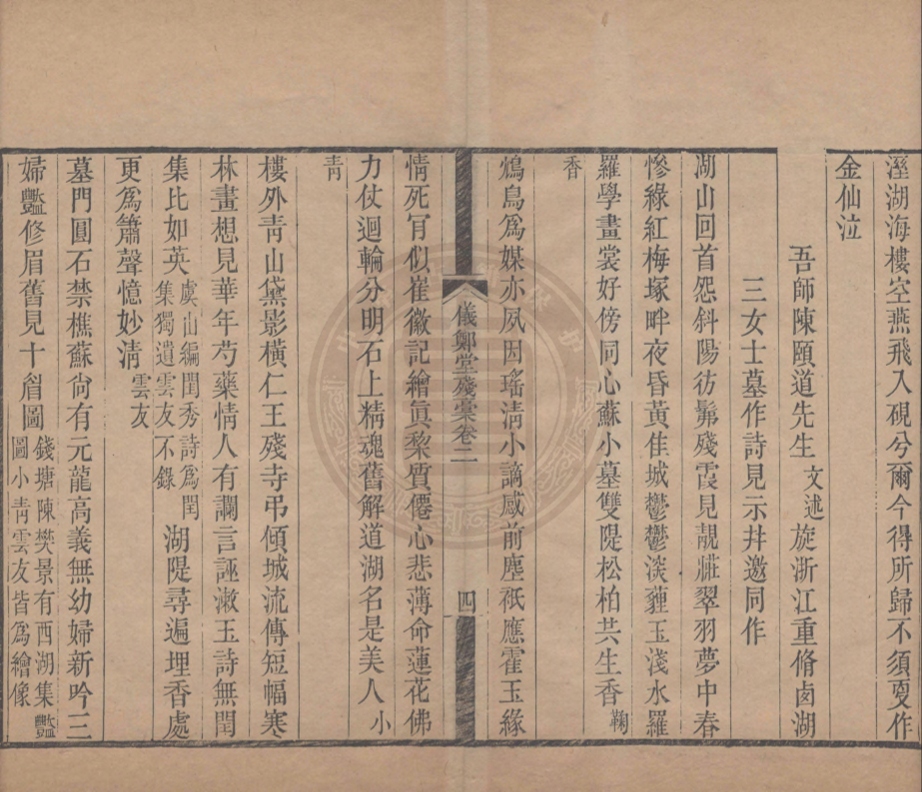 溼湖海樓空燕飛入硯兮爾今得所歸不須更作
金仙泣
吾師陳頤道先生文述旋浙江重脩西湖
三女士墓作詩見示幷邀同作
湖山回首怨斜陽彷髴殘霞見靚糚翠羽夢中春
慘綠紅梅塚畔夜昏黃佳城鬱鬱淡貍玉淺水羅
羅學畫裳好傍同心蘇小墓雙隄松柏共生香鞠
香
鴆鳥爲媒亦夙因瑤清小謫感前塵祇應霍玉緣
儀鄭堂殘稾卷二
四
情死肎似崔徽記繪眞黎質僊心悲薄命蓮花佛
力仗迴輪分明石上精魂舊解道湖名是美人小
青
樓外青山黛影橫仁王殘寺弔傾城流傳短幅寒
林畫想見華年芍藥情人有讕言誣漱玉詩無閏
集比如英虞山編閏秀詩爲閏集獨遺雲友不錄湖隄尋遍埋香處
更爲簫聲憶妙淸雲友
墓門圓石禁樵蘇尙有元龍高義無幼婦新吟三
婦豔修眉舊見十眉圖錢塘陳樊景有西湖集豔圖小青雲友皆爲繪像